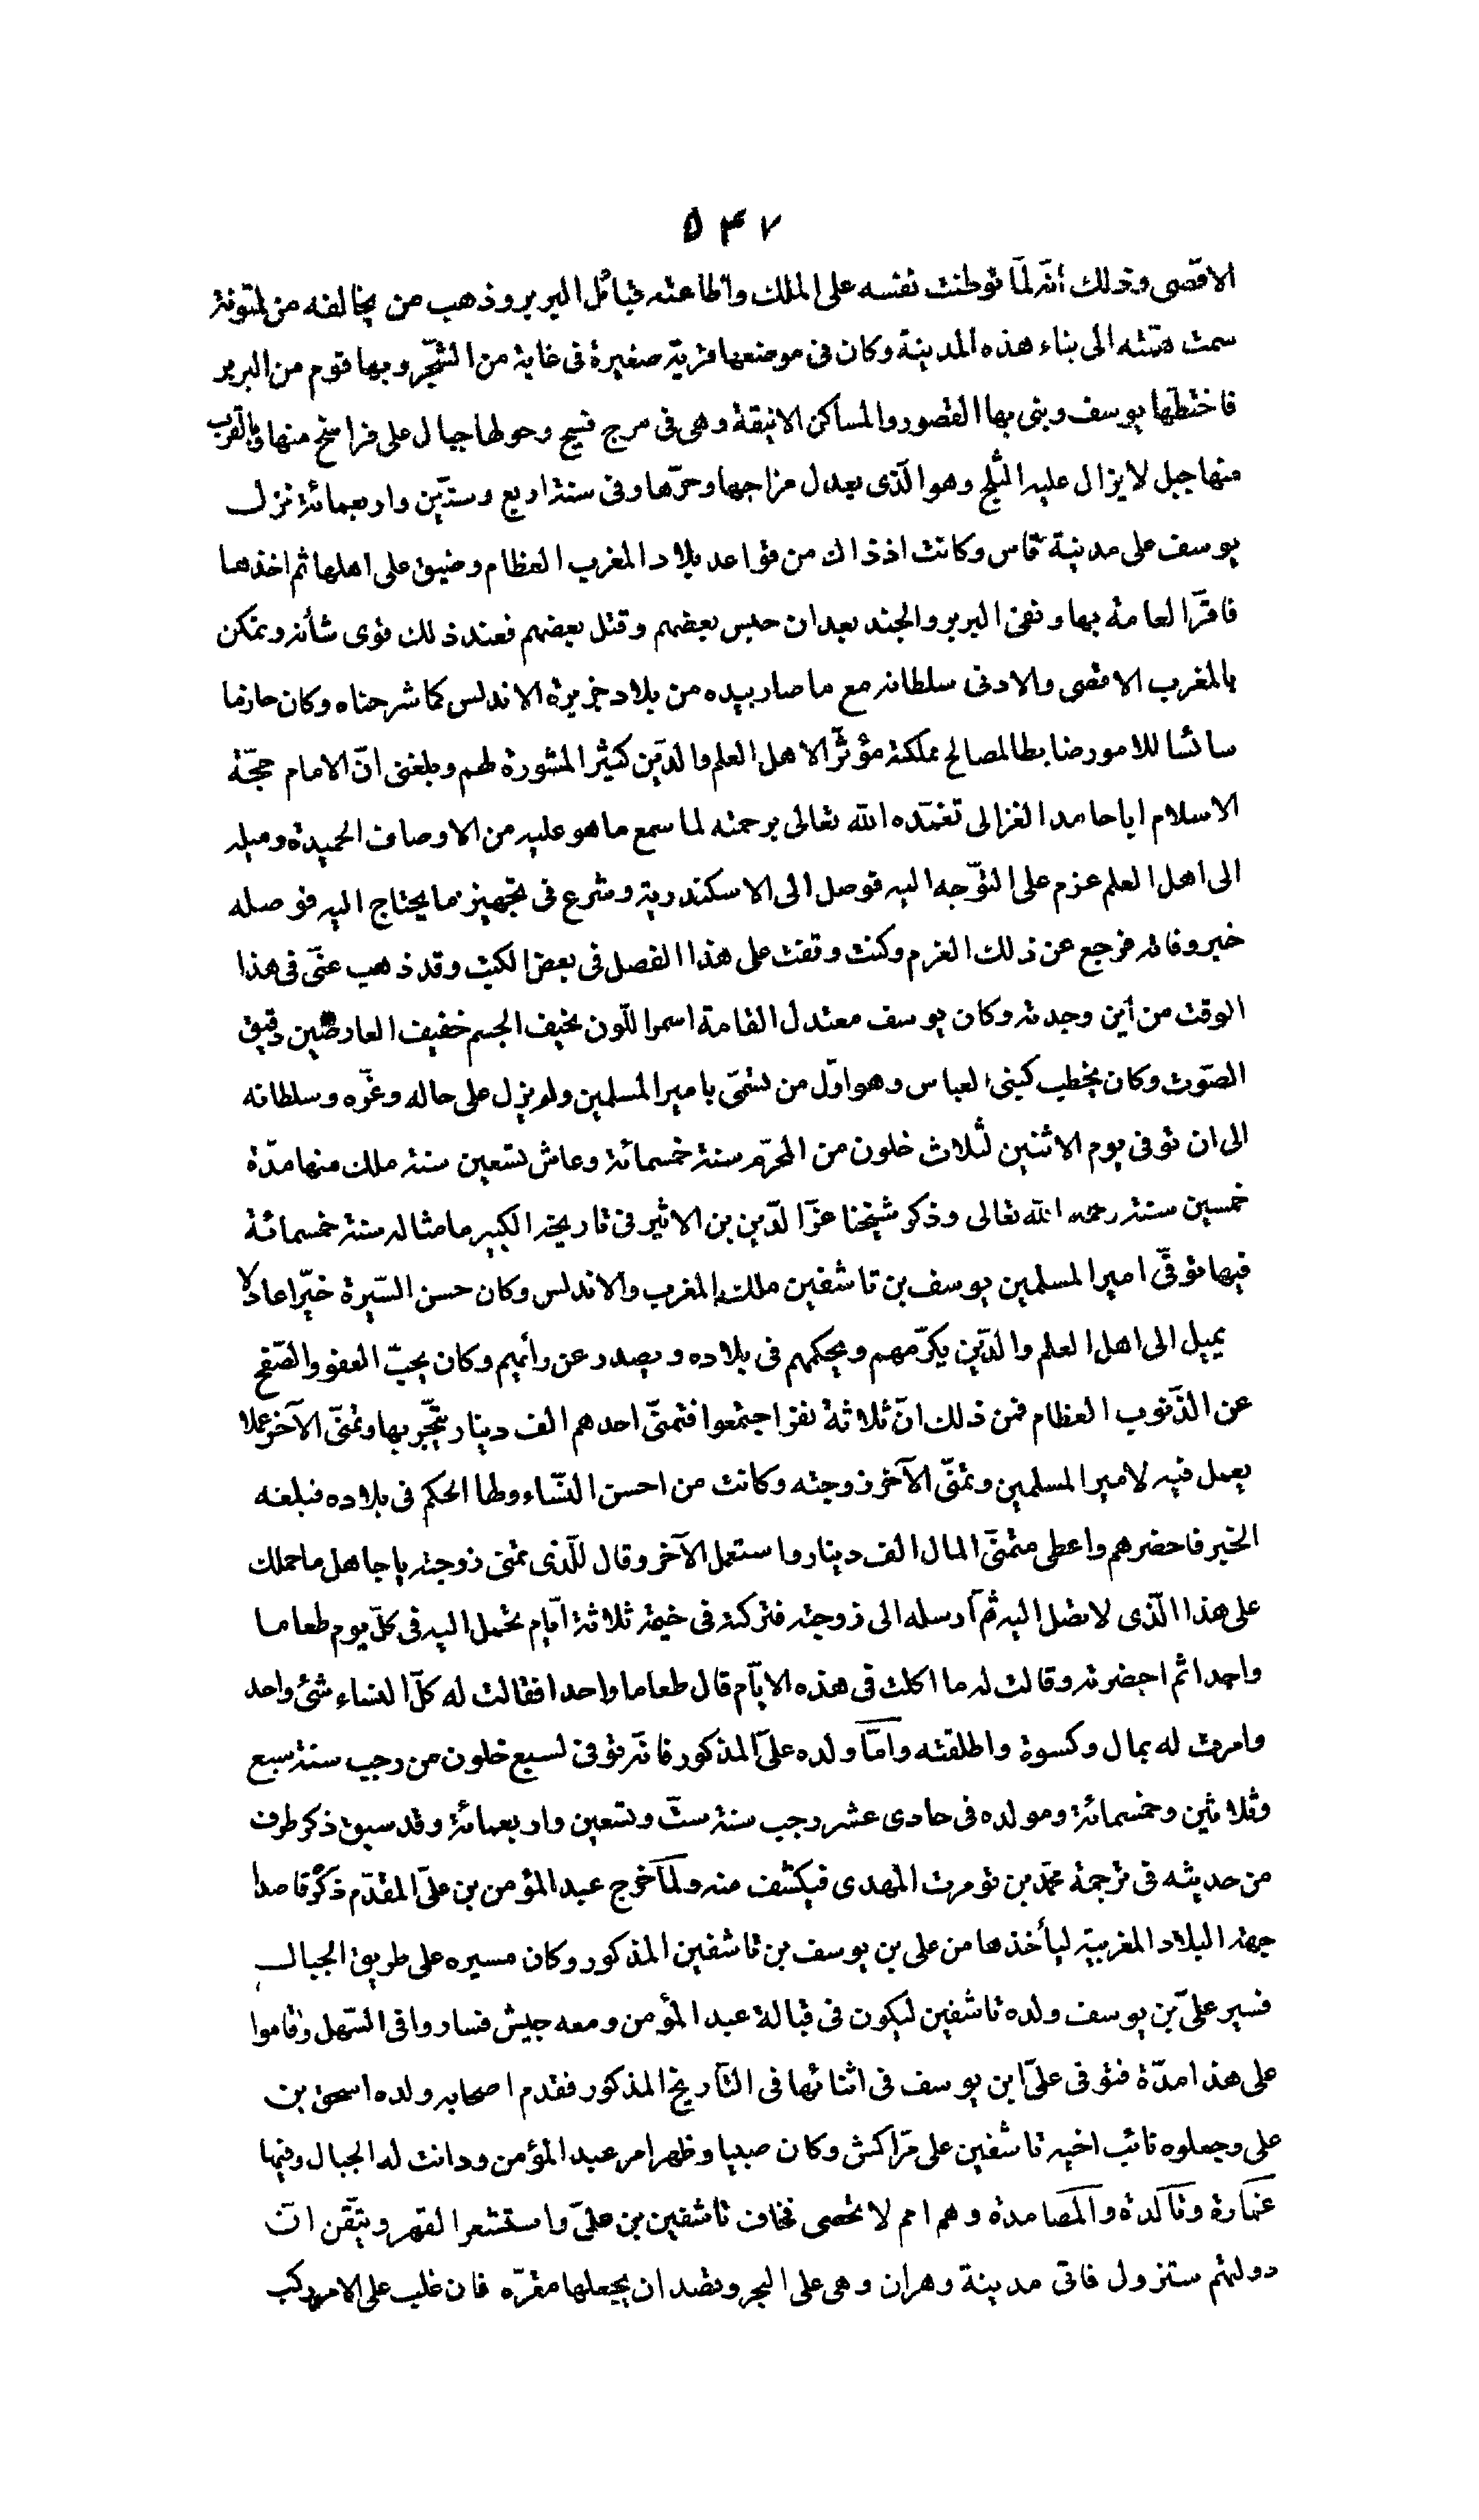 ۵۴۷
الاقصى وذلك أنّه لمّا توطنت نفسه على الملك واطاعته قبائل البربر وذهب من يخالفه من لمتونة
سمت همّته الى بناء هذه المدينة وكان فى موضعها قرية صغيرة فى غابة من الشّجر وبها قوم من البربر
فاختطّها يوسف وبنى بها القصور والمساكن الانيقة وهى فى مرج فسيح وحولها جبال على فراسخ منها وبالقرب
منها جبل لا يزال عليه الثّلج وهو الّذى يعدل مزاجها وحرّها وفى سنة اربع وستّين واربعمائة نزل
يوسف على مدينة فاس وكانت اذ ذاك من قواعد بلاد المغرب العظام وضيق على اهلها ثم اخذها
فاقرّ العامة بها ونفى البربر والجند بعد ان حبس بعضهم وقتل بعضهم فعند ذلك قوى شأنه وتمكن
بالمغرب الاقصى والادنى سلطانه مع ما صار بيده من بلاد جزيرة الاندلس كما شرحناه وكان حازما
سائسا للامور ضابطا لمصالح مملكته مؤثرا لاهل العلم والدّين كثير المشورة لهم وبلغنى انّ الامام حجّة
الاسلام ابا حامد الغزالى تغمّده الله تعالى برحمته لما سمع ما هو عليه من الاوصاف الحميدة وميله
الى اهل العلم عزم على التوّجه اليه فوصل الى الاسكندرية وشرع فى تجهيز ما يحتاج اليه فوصله
خبر وفاته فرجع عن ذلك العزم وكنت وقفت على هذا الفصل فى بعض الكتب وقد ذهب عنّى فى هذا
الوقت من أين وجدته وكان يوسف معتدل القامة اسمر اللّون نحيف الجسم خفيف العارضين دقيق
الصّوت وكان يخطب لبنى العباس وهو اوّل من تسمّى بامير المسلمين ولم يزل على حاله وعزّه وسلطانه
الى ان توفى يوم الاثنين لثلاث خلون من المحرّم سنة خمسمائة وعاش تسعين سنة ملك منها مدّة
خمسين سنة رحمه الله تعالى وذكر شيخنا عزّ الدّين بن الاثير فى تاريخه الكبير ما مثاله سنة خمسمائة
فيها توفّى امير المسلمين يوسف بن تاشفين ملك المغرب والاندلس وكان حسن السّيرة خيّرا عادلا
يميل الى اهل العلم والدّين يكرّمهم ويحكمهم فى بلاده ويصدر عن رأيهم وكان يحبّ العفو والصّفح
عن الذّنوب العظام فمن ذلك انّ ثلاثة نفر اجتمعوا فتمنّى احدهم الف دينار يتّجر بها وتمنّى الآخر عملا
يعمل فيه لامير المسلمين وتمنّى الآخر زوجته وكانت من احسن النّساء ولها الحكم فى بلاده فبلغه
الخبر فاحضرهم واعطى متمنّى المال الف دينار واستعمل الآخر وقال للّذى تمنى زوجته يا جاهل ما حملك
على هذا الّذى لا تصل اليه ثمّ ارسله الى زوجته فتركته فى خيمة ثلاثة ايّام تحمل اليه فى كلّ يوم طعاما
واحدا ثم احضرته وقالت له ما اكلت فى هذه الايّام قال طعاما واحدا فقالت له كلّ النساء شئ واحد
وامرت له بمال وكسوة واطلقته وامّا ولده علىّ المذكور فانّه توفى لسبع خلون من رجب سنة سبع
وثلاثين وخمسمائة ومولده فى حادى عشر رجب سنة ستّ وتسعين واربعمائة وقد سبق ذكر طرف
من حديثه فى ترجمة محمّد بن تومرت المهدى فيكشف منه ولمّا خرج عبد المؤمن بن علىّ المقدّم ذكره قاصدا
جهة البلاد المغربية ليأخذها من على بن يوسف بن تاشفين المذكور وكان مسيره على طريق الجبال
فسير علىّ بن يوسف ولده تاشفين ليكون فى قبالة عبد المؤمن ومعه جيش فساروا فى السّهل وقاموا
على هذا مدّة فتوفى علىّ ابن يوسف فى اثنائها فى التّاريخ المذكور فقدم اصحابه ولده اسحق بن
على وجعلوه نائب اخيه تاشفين على مرّاكش وكان صبيا وظهر امر عبد المؤمن ودانت له الجبال وفيها
غمارة وتالدة والمصامدة وهم امم لا تحصى فخاف تاشفين بن علىّ واستشعر القهر وتيقّن انّ
دولتهم ستزول فاتى مدينة وهران وهى على البحر وقصد ان يجعلها مقرّه فان غلب على الامر ركب